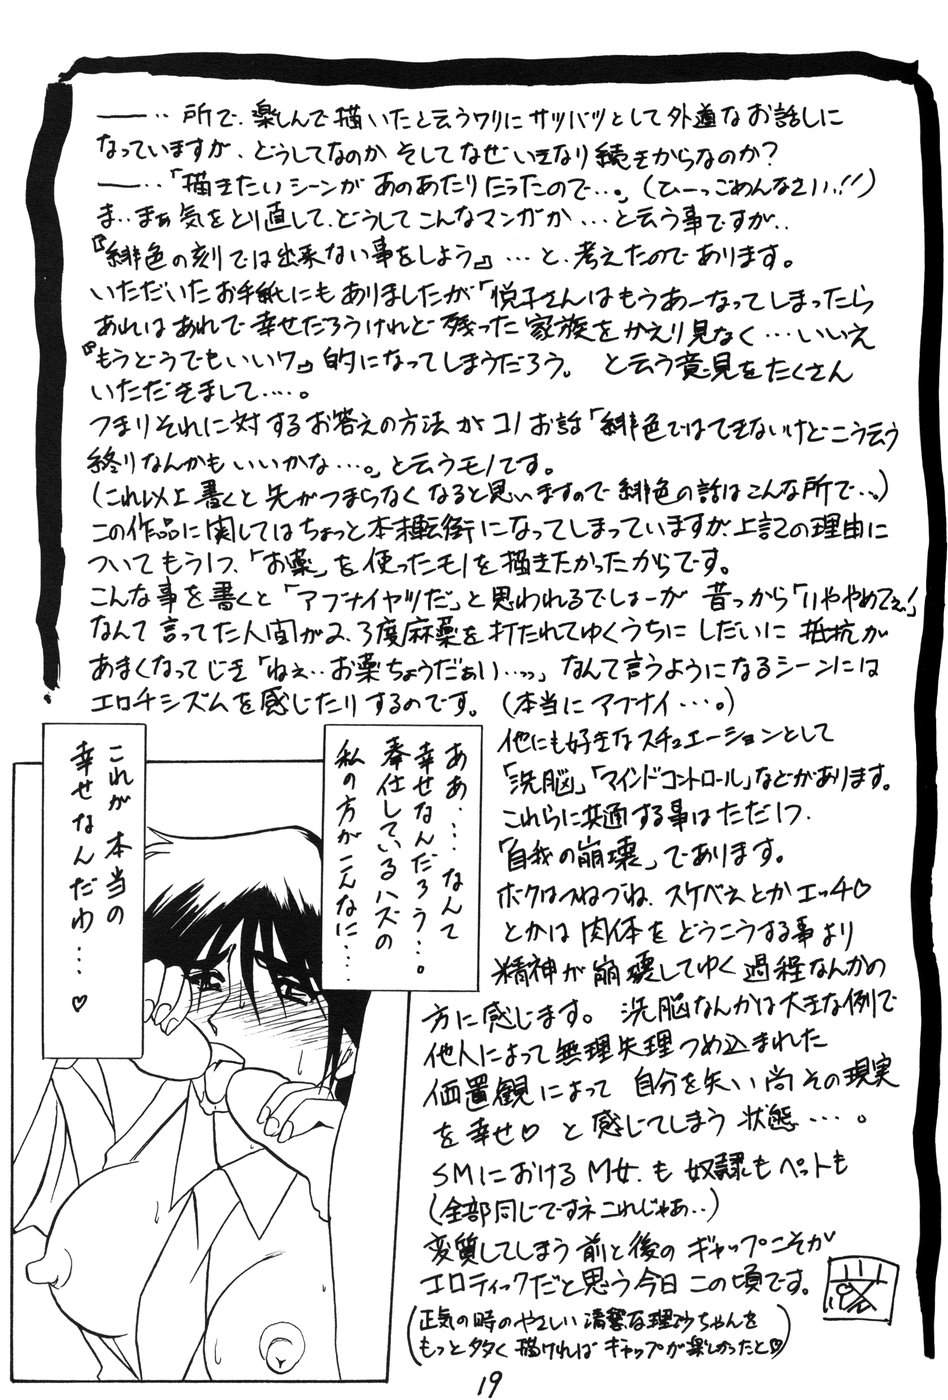 ――‥所で、楽しんで描いたと云うワリにサツバツとして外道なお話しに
なっていますが、どうしてなのか そしてなぜいきなり続きからなのか?
――‥「描きたいシーンがあのあたりだったので…。」(ひーっごめんなさいっ!!)
ま‥まぁ気をとり直して、どうしてこんなマンガか…と云う事ですが‥
『緋色の刻では出来ない事をしよう』…と、考えたのであります。
いただいたお手紙にもありましたが「悦子さんはもうあーなってしまったら
あれはあれで幸せだろうけれど残った家族をかえり見なく…いいえ
『もうどうでもいいワ』的になってしまうだろう。 と云う意見をたくさん
いただきまして‥‥。
つまりそれに対するお答えの方法がコノお話「緋色ではできないけどこう云う
終りなんかもいいかな…。」と云うモノです。
(これ以上書くと先がつまらなくなると思いますので緋色の話はこんな所で‥。)
この作品に関してはちょっと本末転倒になってしまっていますが、上記の理由に
ついてもう1つ、「お薬」を使ったモノを描きたかったからです。
こんな事を書くと「アブナイヤツだ」と思われるでしょーが 昔っから「いややめてぇ!」
なんて言ってた人間が2、3度麻薬を打たれてゆくうちに しだいに 抵抗が
あまくなってじき「ねぇ‥お薬ちょうだぁい…っ」なんて言うようになるシーンには
エロチシズムを感じたりするのです。(本当にアブナイ…。)
他にも好きなスチュエーションとして
「洗脳」「マインドコントロール」などがあります。
これらに共通する事はただ1つ、
「自我の崩壊」であります。
ボクはつねづね、スケベぇとかエッチ♡
とかは肉体をどうこうする事より
精神が崩壊してゆく過程なんかの
方に感じます。 洗脳なんかは大きな例で
他人によって無理矢理つめ込まれた
価置観によって 自分を失い尚その現実
を幸せ♡ と感じてしまう状態‥‥。
SMにおけるM女も 奴隷もペットも
(全部同じですネこれじゃあ‥)
変質してしまう前と後のギャップこそが
エロティックだと思う今日この頃です。
(正気の時のやさしい清楚な理沙ちゃんを
もっと多く描ければギャップが楽しかったと♡)
ああ…なんて
幸せなんだろう…。
奉仕しているハズの
私の方がこんなに…
これが本当の
幸せなんだわ…♡
19